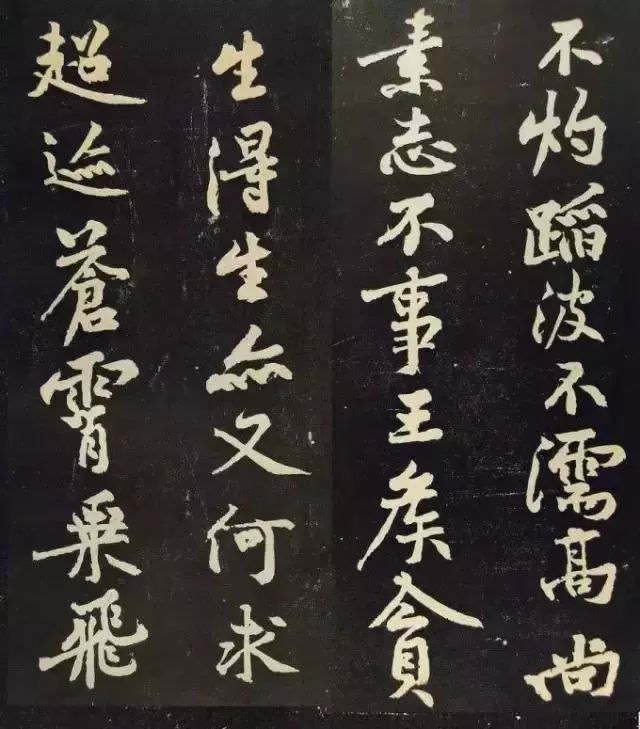 不灼蹈波不濡高尚
素志不事王矦貪
生得生亦又何求
超迹蒼霄乗飛